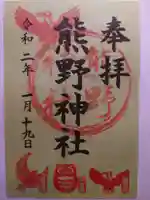 奉拝
熊野神社
令和二年一月十九日